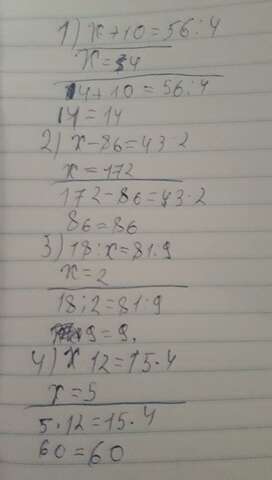 1) x+10=56:4
x=34
14+10=56:4
14=14
2) x-86=43·2
x=172
172-86=43·2
86=86
3) 18:x=81·9
x=2
18:2=81:9
9=9.
4) x 12=15·4
x=5
5·12=15·4
60=60